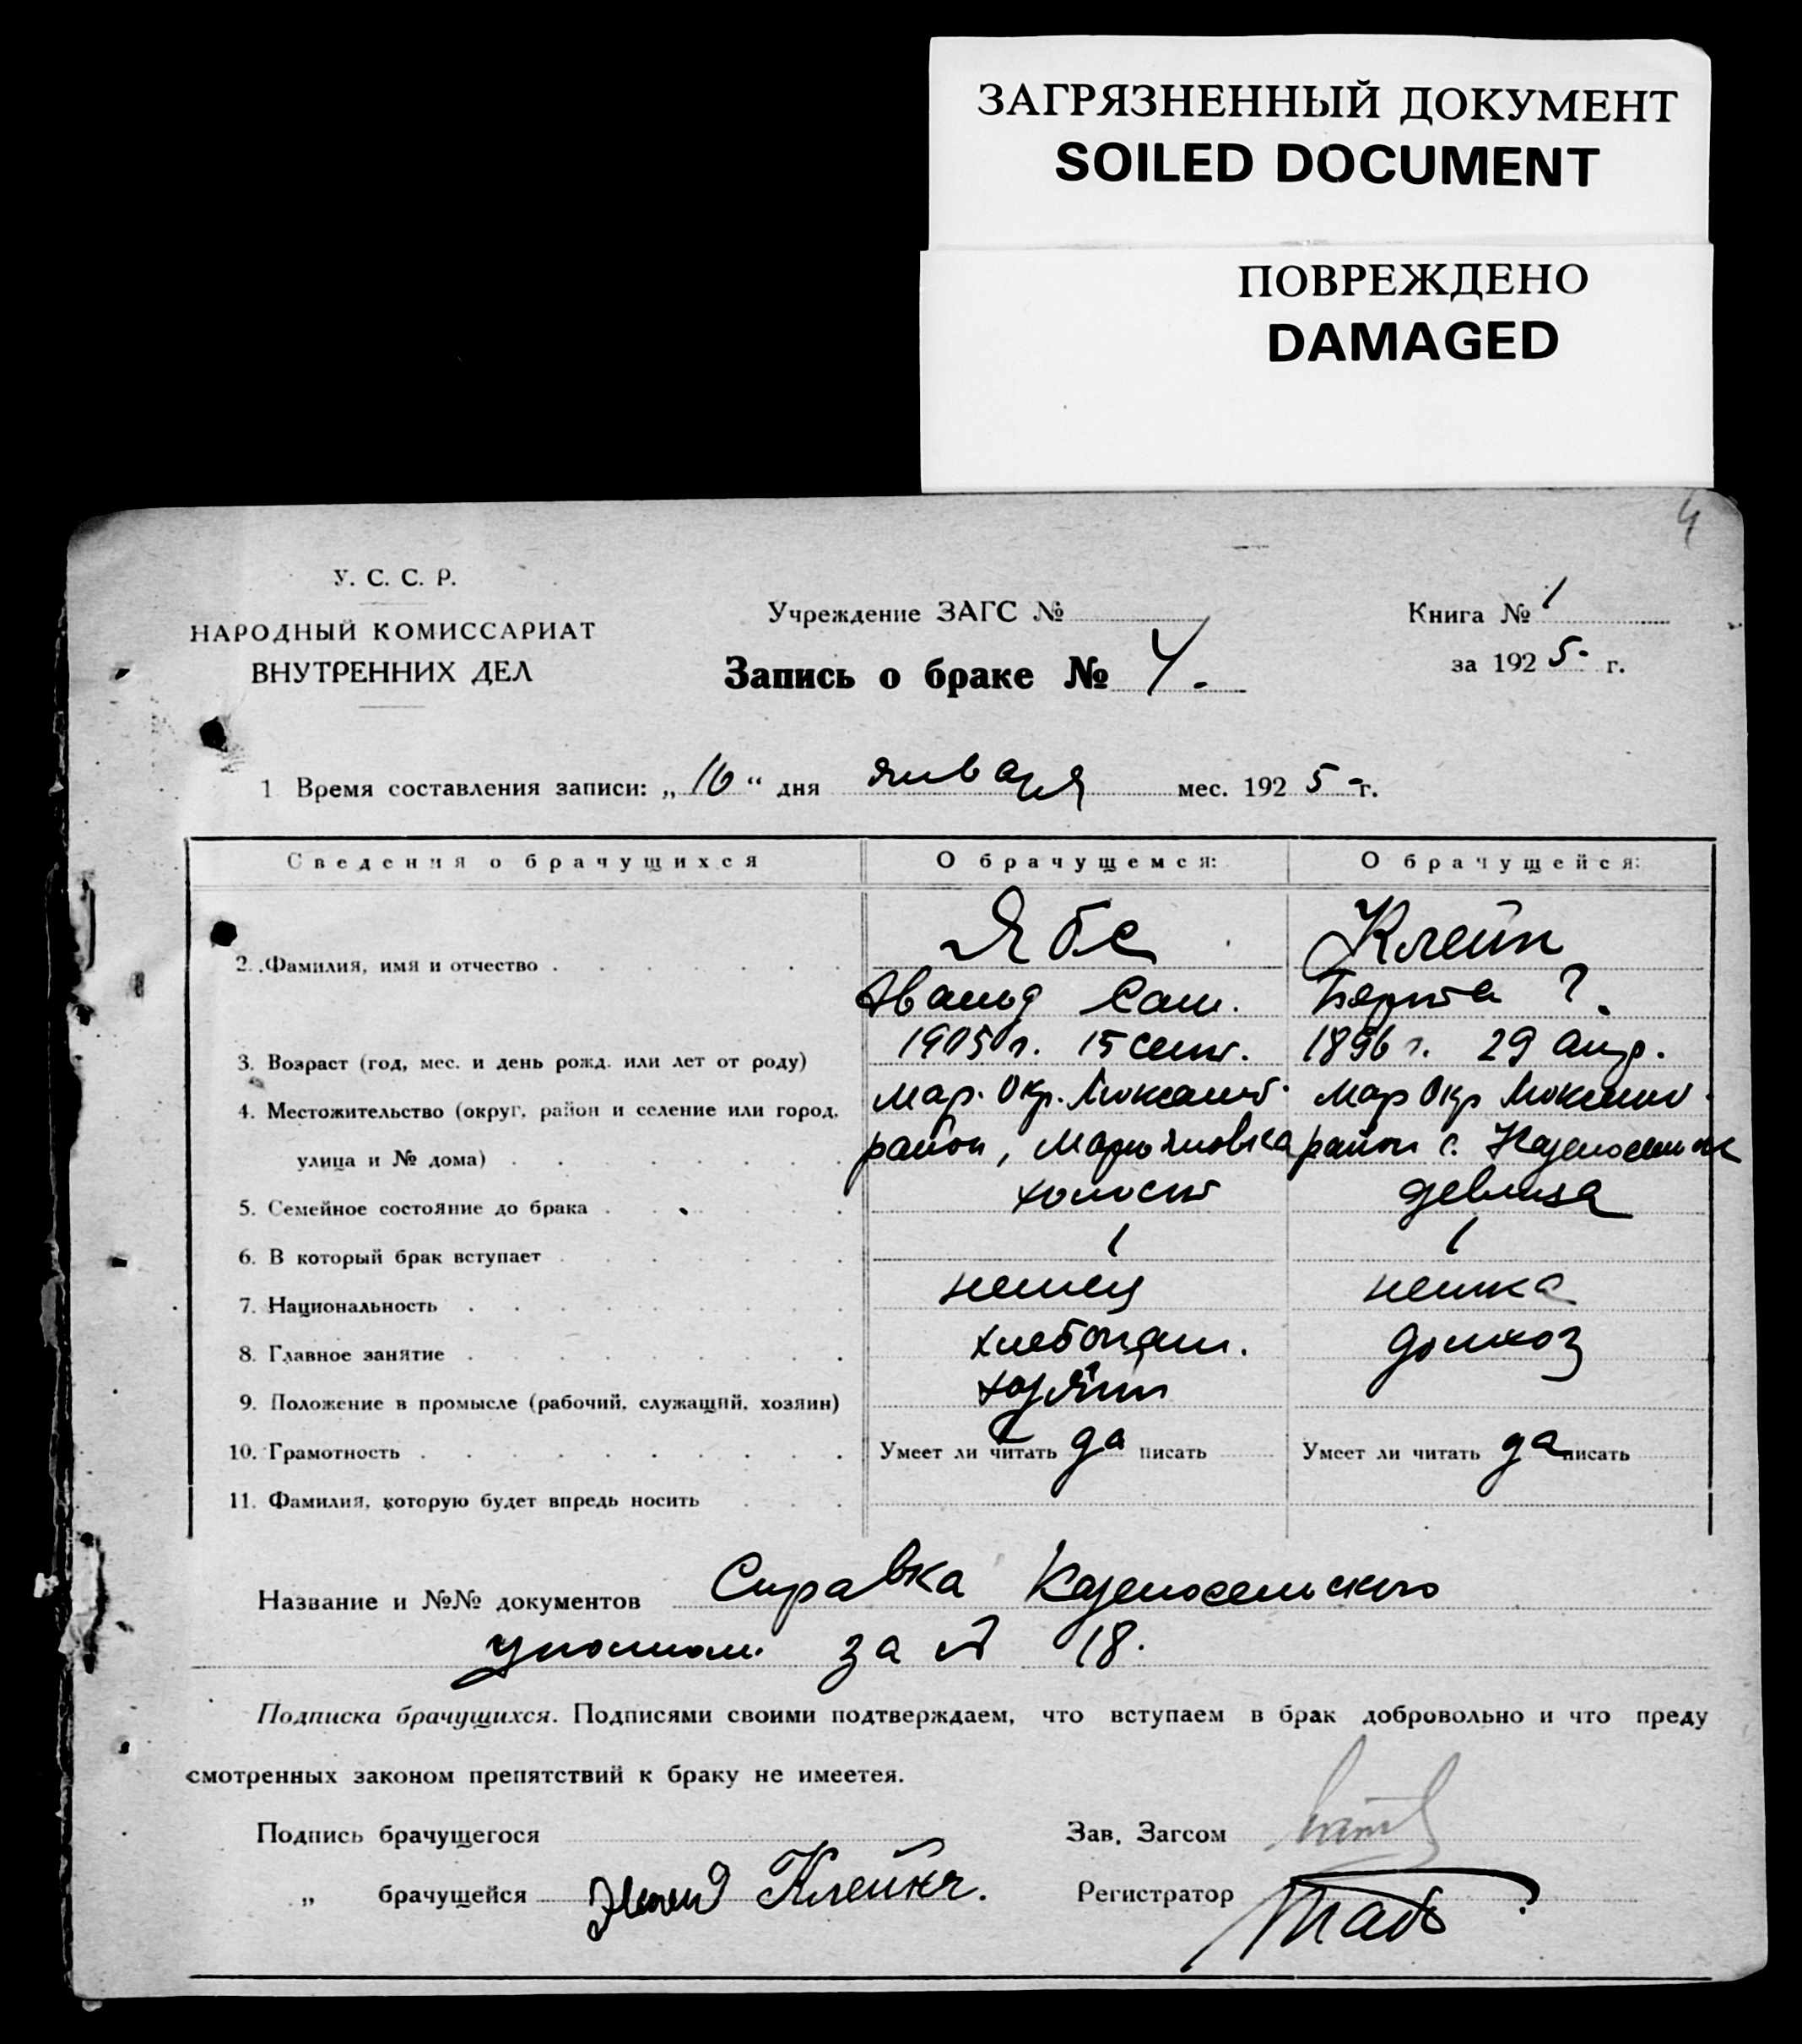 ЗАГРЯЗНЕННЫЙ ДОКУМЕНТ
SOILED DOCUMENT
ПОВРЕЖДЕНО
DAMAGED
4
У. С. С. Р.
НАРОДНЫЙ КОМИССАРИАТ
ВНУТРЕННИХ ДЕЛ
Учреждение ЗАГС №
Запись о браке № 4.
Книга № 1
за 1925 г.
1 Время составления записи: „16“ дня января мес. 1925 г.
Сведения о брачущихся О брачущемся: О брачущейся:
Ябс Клейн
2. Фамилия, имя и отчество
Сам. Берта ?.
3. Возраст (год, мес. и день рожд. или лет от роду) 1905 г. 15 сент. 1896 г. 29 апр.
4. Местожительство (округ, район и селение или город, Мар. Окр. Люксемб. Мар Окр Люксемб.
улица и № дома) район, Марьяновка район с.
5. Семейное состояние до брака холост девица
6. В который брак вступает 1 1
7. Национальность немец немка
8. Главное занятие хлебопаш. домхоз
9. Положение в промысле (рабочий, служащий, хозяин) хозяин
10. Грамотность Умеет ли читать да писать Умеет ли читать да писать
11. Фамилия, которую будет впредь носить
Название и №№ документов Справка Казеносельского
уполном. за № 18.
Подписка брачущихся. Подписями своими подтверждаем, что вступаем в брак добровольно и что преду
смотренных законом препятствий к браку не имеетея.
Подпись брачущегося
Зав. Загсом
„ брачущейся Клейн
Регистратор